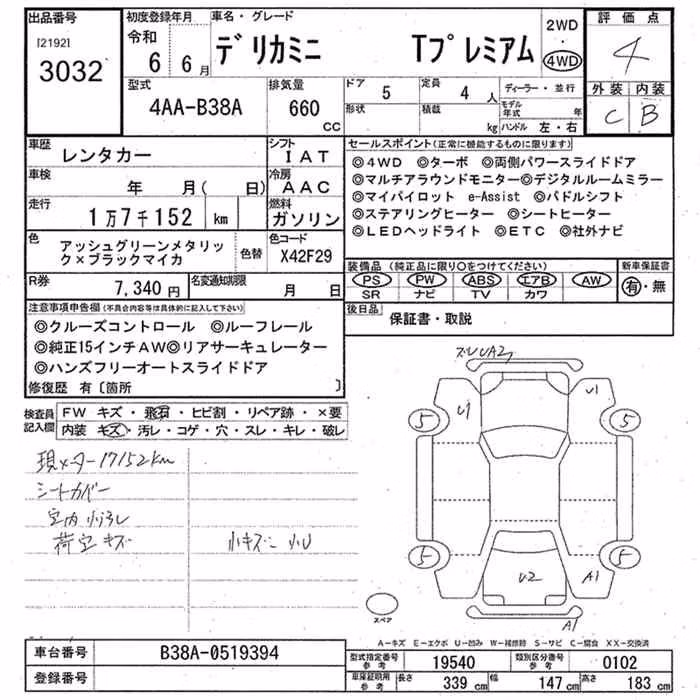 出品番号
[2192]
3032
初度登録年月
令和
6 6月
車名・グレード
デリカミニ Tプレミアム
2WD
4WD
評価点
4
外装 内装
C B
型式
4AA-B38A
排気量
660
CC
ドア
5
定員
4 人
形状
積載
kg
ディーラー・並行
モデル年式 年
ハンドル 左・右
車歴
レンタカー
シフト
IAT
車検
年 月(日)
冷房
AAC
走行
1万7千152 km
燃料
ガソリン
色
アッシュグリーンメタリック×ブラックマイカ
色替
色コード
X42F29
R券
7,340円
名変通知期限
月 日
セールスポイント(正常に機能するものに限ります)
◎4WD ◎ターボ ◎両側パワースライドドア
◎マルチアラウンドモニター◎デジタルルームミラー
◎マイパイロット e-Assist ◎パドルシフト
◎ステアリングヒーター ◎シートヒーター
◎LEDヘッドライト ◎ETC ◎社外ナビ
装備品(純正品に限り○をつけてください)
新車保証書
PS PW ABS エアB AW
有・無
SR ナビ TV カワ
後日品
保証書・取説
注意事項申告欄(不具合内容等は具体的に記入して下さい)
◎クルーズコントロール ◎ルーフレール
◎純正15インチAW◎リアサーキュレーター
◎ハンズフリーオートスライドドア
修復歴 有〔箇所 〕
検査員記入欄
FW キズ・飛石・ヒビ割・リペア跡・×要
内装 キズ・汚レ・コゲ・穴・スレ・キレ・破レ
現メーター17152km
シートカバー
室内小汚れ
荷室キズ
小キズ 小U
UA2
U1
U1
5
5
5
5
U2
A1
A1
スペア
A-キズ E-エクボ U-凹み W-補修跡 S-サビ C-腐食 XX-交換済
車台番号
B38A-0519394
登録番号
型式指定番号
参考
19540
類別区分番号
参考
0102
車庫証明用
参考
長さ
339 cm
幅
147 cm
高さ
183 cm